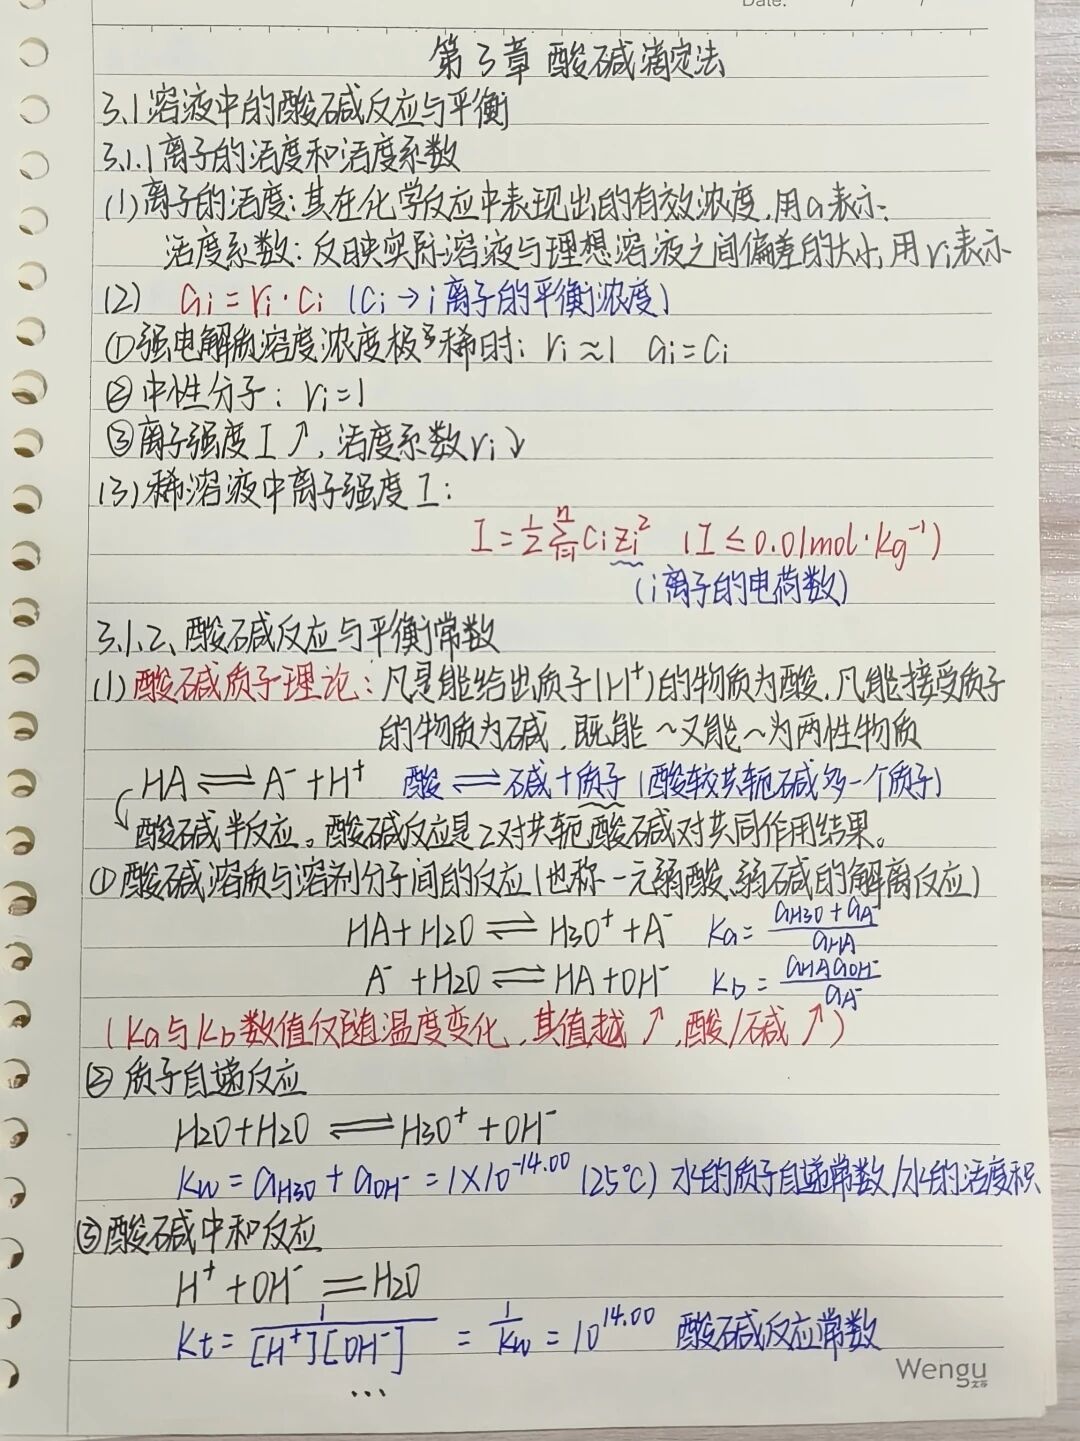 Date: / /
第3章 酸碱滴定法
3.1溶液中的酸碱反应与平衡
3.1.1离子的活度和活度系数
(1)离子的活度:其在化学反应中表现出的有效浓度,用a表示;
活度系数:反映实际溶液与理想溶液之间偏差的大小,用ri表示
(2) ai=ri·ci (ci→i离子的平衡浓度)
①强电解质溶度浓度极稀时: ri≈1 ai=ci
②中性分子: ri=1
③离子强度I↗,活度系数ri↘
(3)稀溶液中离子强度I:
I=½ⁿ∑ᵢ₌₁cizi² (I≤0.01mol·kg⁻¹)
(i离子的电荷数)
3.1.2、酸碱反应与平衡常数
(1)酸碱质子理论:凡是能给出质子(H⁺)的物质为酸,凡能接受质子
的物质为碱,既能~又能~为两性物质
HA⇌A⁻+H⁺ 酸⇌碱+质子(酸较共轭碱多一个质子)
酸碱半反应。酸碱反应是2对共轭酸碱对共同作用结果。
①酸碱溶质与溶剂分子间的反应(也称一元弱酸、弱碱的解离反应)
HA+H2O⇌H3O⁺+A⁻ Ka=aH3O+aA⁻/aHA
A⁻+H2O⇌HA+OH⁻ Kb=aHAaOH⁻/aA⁻
(Ka与Kb数值仅随温度变化,其值越↗,酸/碱↗)
②质子自递反应
H2O+H2O⇌H3O⁺+OH⁻
Kw=aH3O+aOH⁻=1×10⁻¹⁴·⁰⁰ (25℃) 水的质子自递常数/水的活度积
③酸碱中和反应
H⁺+OH⁻=H2O
Kt=1/[H⁺][OH⁻]=1/Kw=10¹⁴·⁰⁰ 酸碱反应常数
...
Wengu